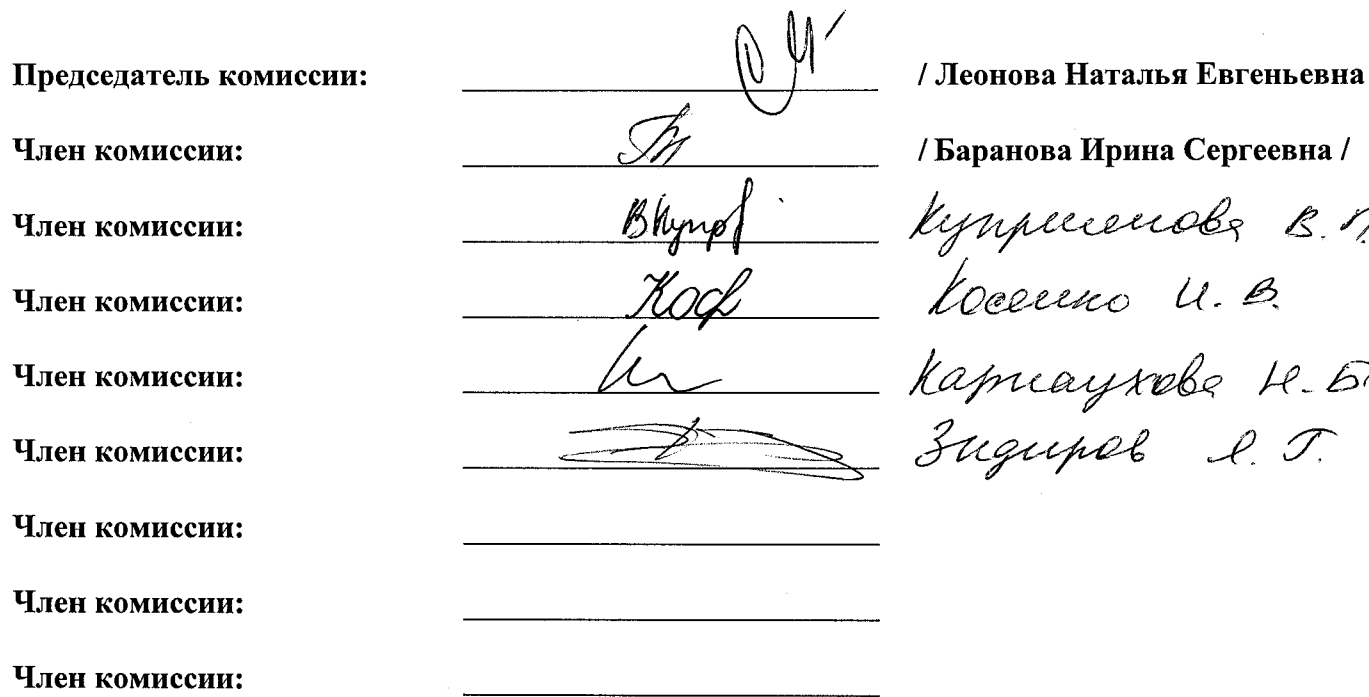 Председатель комиссии: / Леонова Наталья Евгеньевна
Член комиссии: / Баранова Ирина Сергеевна /
Член комиссии: ВКупр Куприянова В. П.
Член комиссии: Кос Косенко И. В.
Член комиссии: Карнаухова Н. Б.
Член комиссии: Зидиров Я. Г.
Член комиссии:
Член комиссии:
Член комиссии: